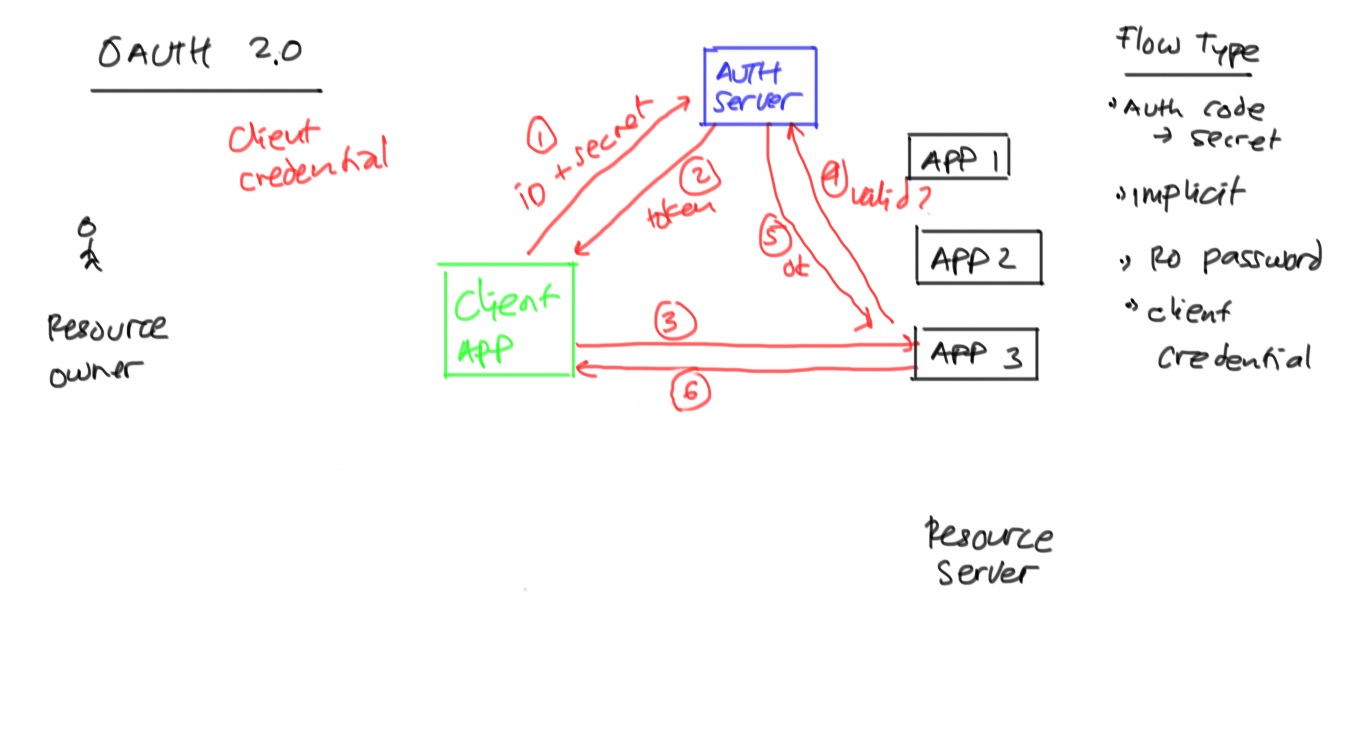 OAUTH 2.0
Client
credential
Resource
owner
AUTH
Server
1
iD + secret
2
token
4
valid?
5
ok
Client
APP
3
6
APP 1
APP 2
APP 3
Resource
Server
Flow Type
Auth code
→ secret
Implicit
RO password
client
Credential